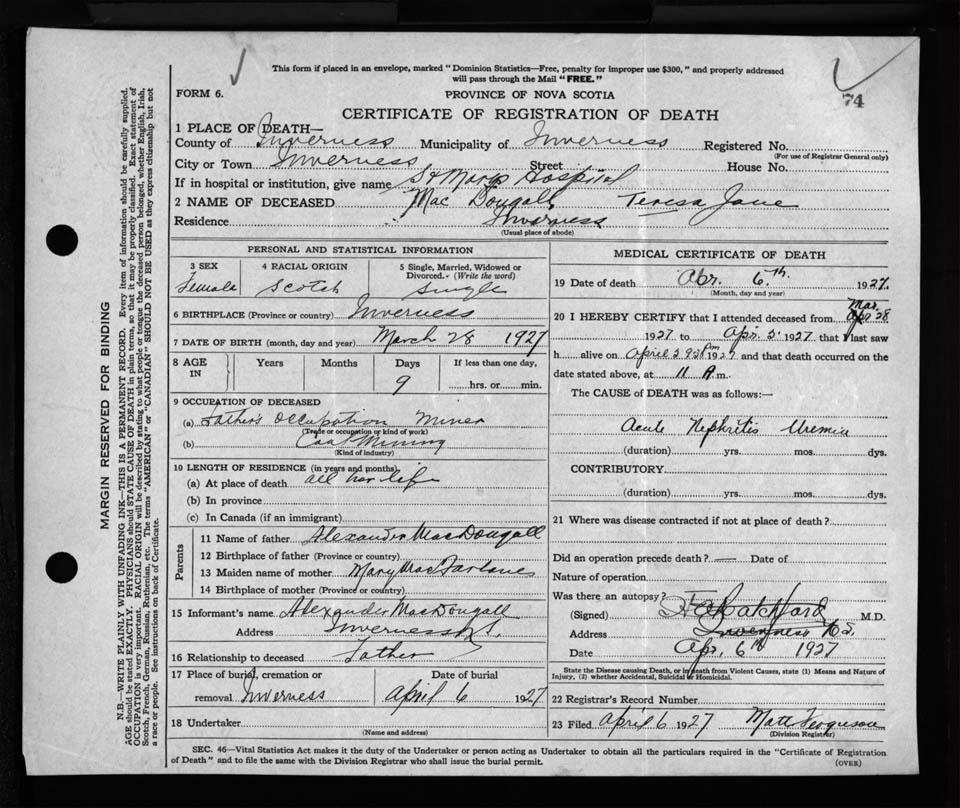 This form if placed in an envelope, marked "Dominion Statistics—Free, penalty for improper use $300," and properly addressed
will pass through the Mail "FREE."
74
FORM 6.
PROVINCE OF NOVA SCOTIA
CERTIFICATE OF REGISTRATION OF DEATH
1 PLACE OF DEATH—
County of Inverness Municipality of Inverness Registered No.
(For use of Registrar General only)
City or Town Inverness Street House No.
If in hospital or institution, give name St Marys Hospital
2 NAME OF DECEASED Mac Dougall, Teresa Jane
Residence Inverness
(Usual place of abode)
PERSONAL AND STATISTICAL INFORMATION
3 SEX 4 RACIAL ORIGIN 5 Single, Married, Widowed or
Divorced. (Write the word)
Female Scotch Single
6 BIRTHPLACE (Province or country) Inverness
7 DATE OF BIRTH (month, day and year) March 28 1927
8 AGE IN Years Months Days If less than one day,
9 hrs. or min.
9 OCCUPATION OF DECEASED
(a) Father's Occupation Miner
(Trade or occupation or kind of work)
(b) Coal Mining
(Kind of industry)
10 LENGTH OF RESIDENCE (in years and months)
(a) At place of death all her life
(b) In province
(c) In Canada (if an immigrant)
Parents
11 Name of father Alexander MacDougall
12 Birthplace of father (Province or country)
13 Maiden name of mother Mary MacFarlane
14 Birthplace of mother (Province or country)
15 Informant's name Alexander MacDougall
Address Inverness N.S.
16 Relationship to deceased Father
17 Place of burial, cremation or Date of burial
removal Inverness April 6 1927
18 Undertaker
(Name and address)
MEDICAL CERTIFICATE OF DEATH
19 Date of death Apr. 6th 1927
(Month, day and year)
Mar.
20 I HEREBY CERTIFY that I attended deceased from Apr 28
1927 to Apr 5 1927 that I last saw
h alive on April 5 1927 and that death occurred on
date stated above, at 11 A.m.
The CAUSE of DEATH was as follows:—
Acute Nephritis Uremia
(duration) yrs. mos. dys.
CONTRIBUTORY
(duration) yrs. mos. dys.
21 Where was disease contracted if not at place of death?
Did an operation precede death? — Date of
Nature of operation
Was there an autopsy?
(Signed) Ratchford M.D.
Address Inverness N.S.
Date Apr. 6th 1927
State the Disease causing Death, or in death from Violent Causes, state (1) Means and Nature of
Injury, (2) whether Accidental, Suicidal or Homicidal.
22 Registrar's Record Number
23 Filed April 6 1927 Matt Ferguson
(Division Registrar)
SEC. 46—Vital Statistics Act makes it the duty of the Undertaker or person acting as Undertaker to obtain all the particulars required in the "Certificate of Registration
of Death" and to file the same with the Division Registrar who shall issue the burial permit.
(OVER)
MARGIN RESERVED FOR BINDING
N.B.—WRITE PLAINLY WITH UNFADING INK—THIS IS A PERMANENT RECORD. Every item of information should be carefully supplied.
AGE should be stated EXACTLY. PHYSICIANS should STATE CAUSE OF DEATH in plain terms, so that it may be properly classified. Exact statement of
OCCUPATION is very important. RACIAL ORIGIN will be described by stating to what people or tongue the deceased person belonged, whether English, Irish,
Scotch, French, German, Russian, Ruthenian, etc. The terms "AMERICAN" or "CANADIAN" SHOULD NOT BE USED as they express citizenship but not
a race or people. See instructions on back of Certificate.